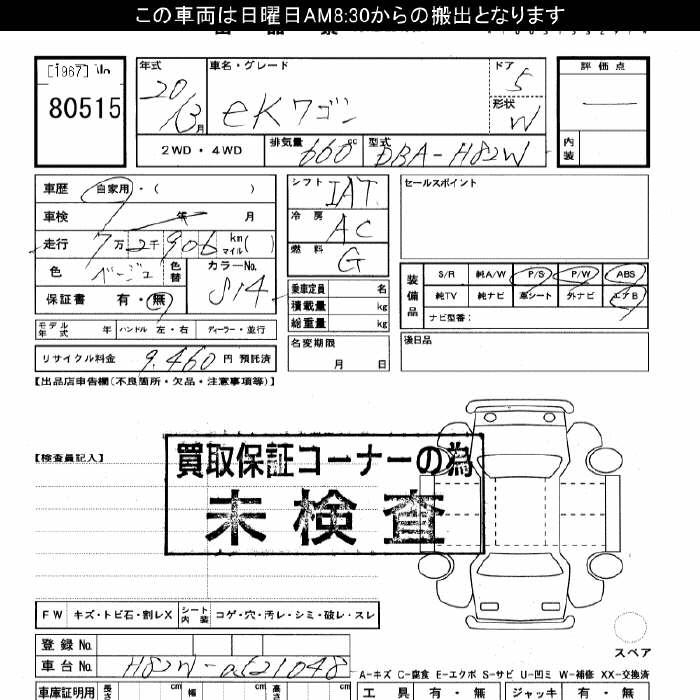 この車両は日曜日AM8:30からの搬出となります
[1967]
80515
年式
20/3月
車名・グレード
eKワゴン
ドア
5
形状
W
評価点
内装
2WD・4WD
排気量
660cc
型式
DBA-H82W
車歴 自家用・( )
車検 年 月
走行 7万2千906 km マイル( )
色 ベージュ
色替
カラーNo.
S14
保証書 有・無
シフト
IAT
冷房
AC
燃料
G
乗車定員 名
積載量 kg
総重量 kg
名変期限
月 日
セールスポイント
装備品
S/R 純A/W P/S P/W ABS
純TV 純ナビ 革シート 外ナビ エアB
ナビ型番:
後日品
モデル年式 年 ハンドル 左・右 ディーラー・並行
リサイクル料金 9,460 円 預託済
【出品店申告欄(不良箇所・欠品・注意事項等)】
【検査員記入】
買取保証コーナーの為
未検査
FW キズ・トビ石・割レX シート内装 コゲ・穴・汚レ・シミ・破レ・スレ
スペア
登録No.
車台No.
A-キズ C-腐食 E-エクボ S-サビ U-凹ミ W-補修 XX-交換済
車庫証明用 長さ cm 幅 cm 高さ cm
工具 有・無 ジャッキ 有・無